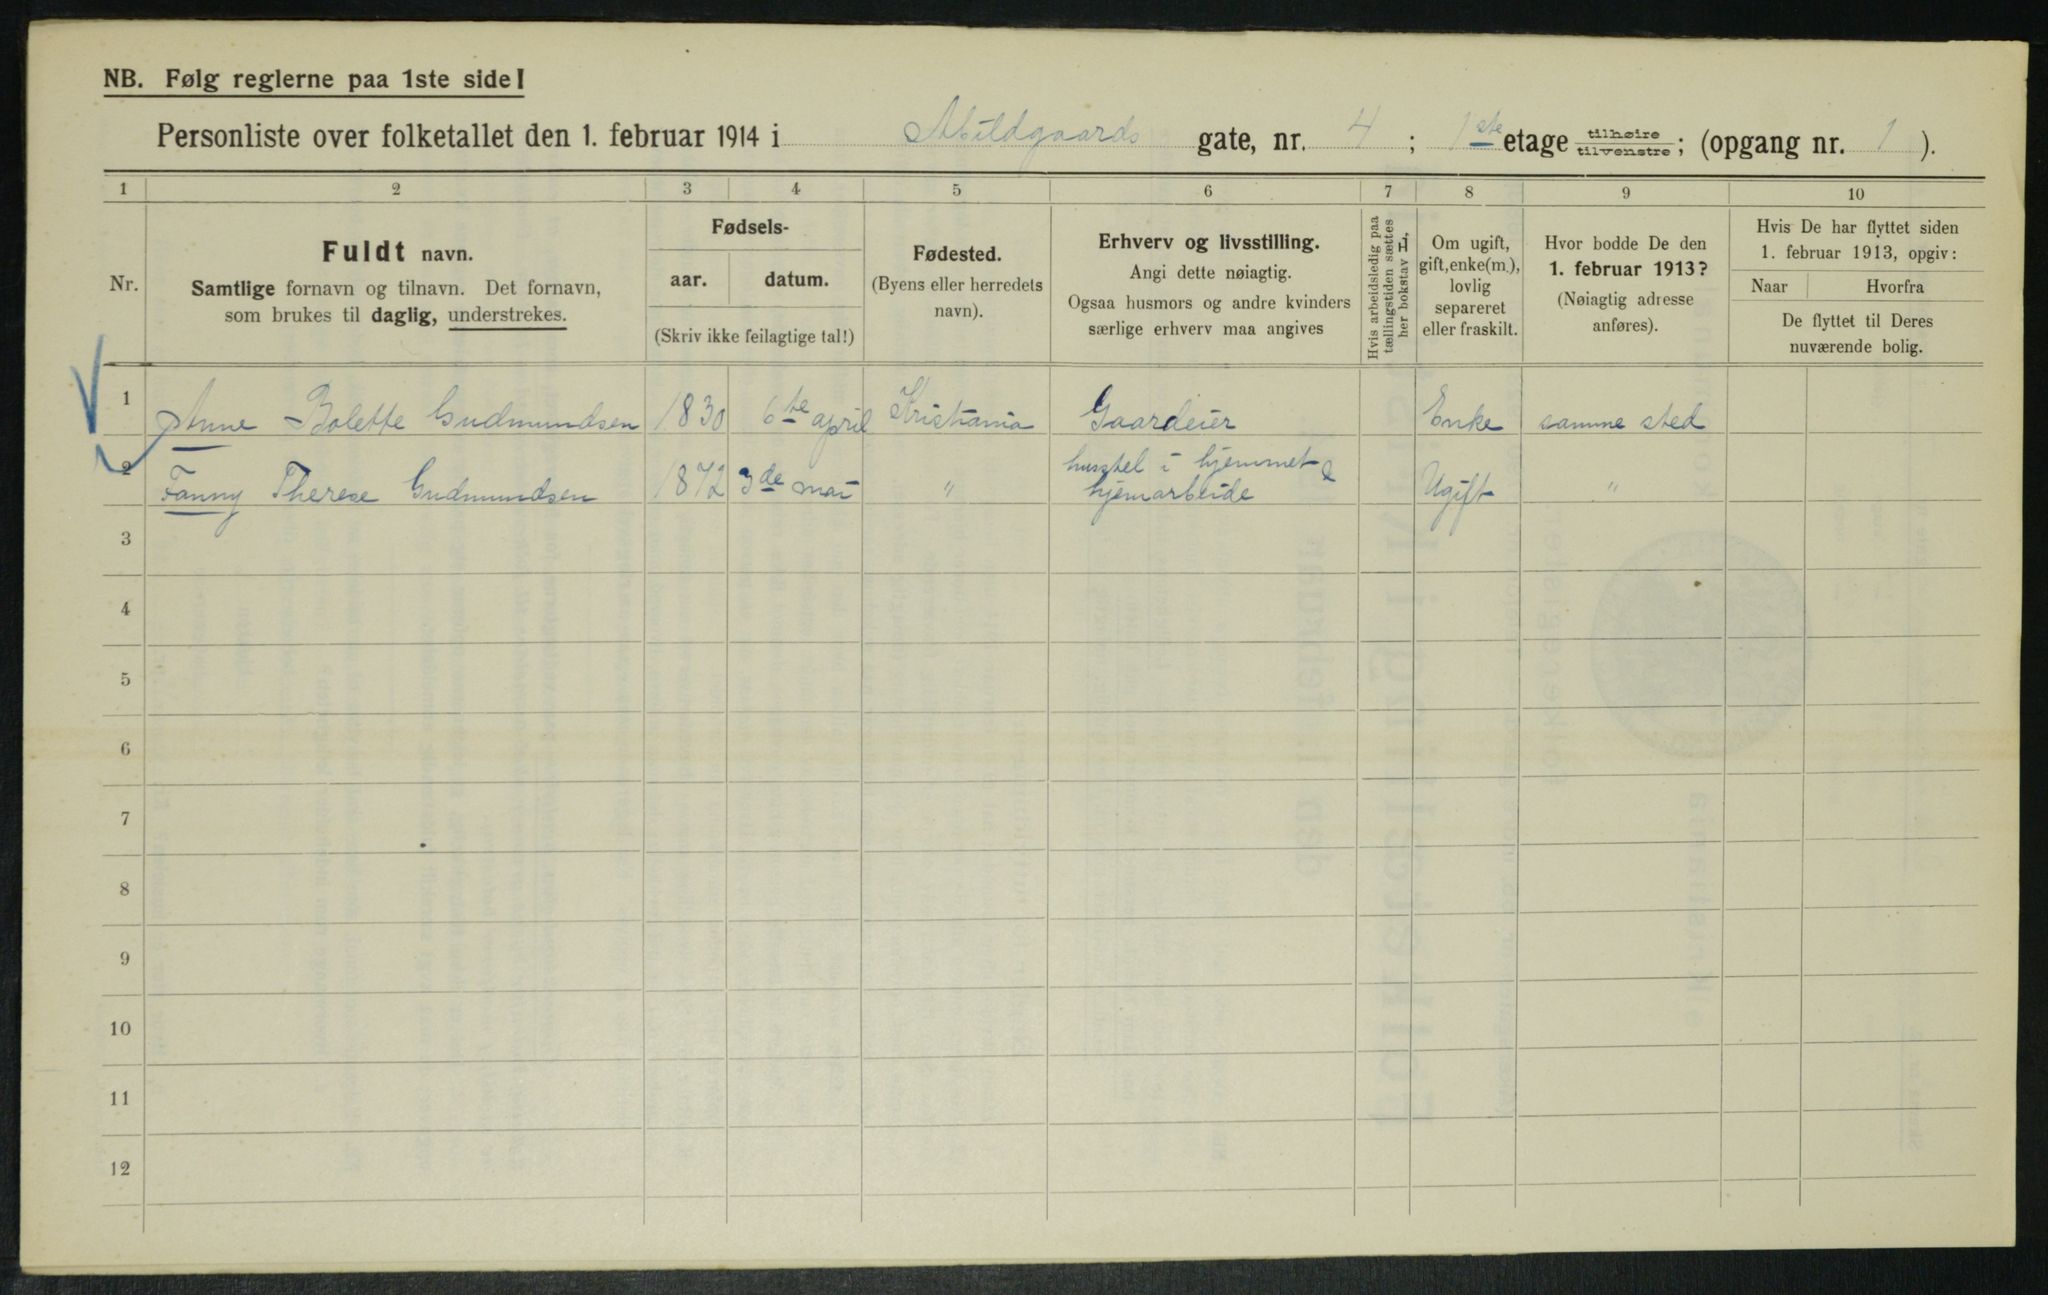 NB. Følg reglerne paa 1ste side!
Personliste over folketallet den 1. februar 1914 i Abildgaards gate, nr. 4 ; 1ste etage tilhøire tilvenstre ; (opgang nr. 1 ).
1 2 3 4 5 6 7 8 9 10
Nr.
Fuldt navn.
Samtlige fornavn og tilnavn. Det fornavn,
som brukes til daglig, understrekes.
Fødsels-
aar. datum.
(Skriv ikke feilagtige tal!)
Fødested.
(Byens eller herredets
navn).
Erhverv og livsstilling.
Angi dette nøiagtig.
Ogsaa husmors og andre kvinders
særlige erhverv maa angives
Hvis arbeidsledig paa
tællingstiden sættes
her bokstav L,
Om ugift,
gift, enke(m.),
lovlig
separeret
eller fraskilt.
Hvor bodde De den
1. februar 1913?
(Nøiagtig adresse
anføres).
Hvis De har flyttet siden
1. februar 1913, opgiv:
Naar Hvorfra
De flyttet til Deres
nuværende bolig.
1 Anne Bolette Gudmundsen 1830 6te april Kristiania Gaardeier Enke samme sted
2 Fanny Therese Gudmundsen 1872 3de mai " husstel i hjemmet &
hjemarbeide Ugift "
3
4
5
6
7
8
9
10
11
12